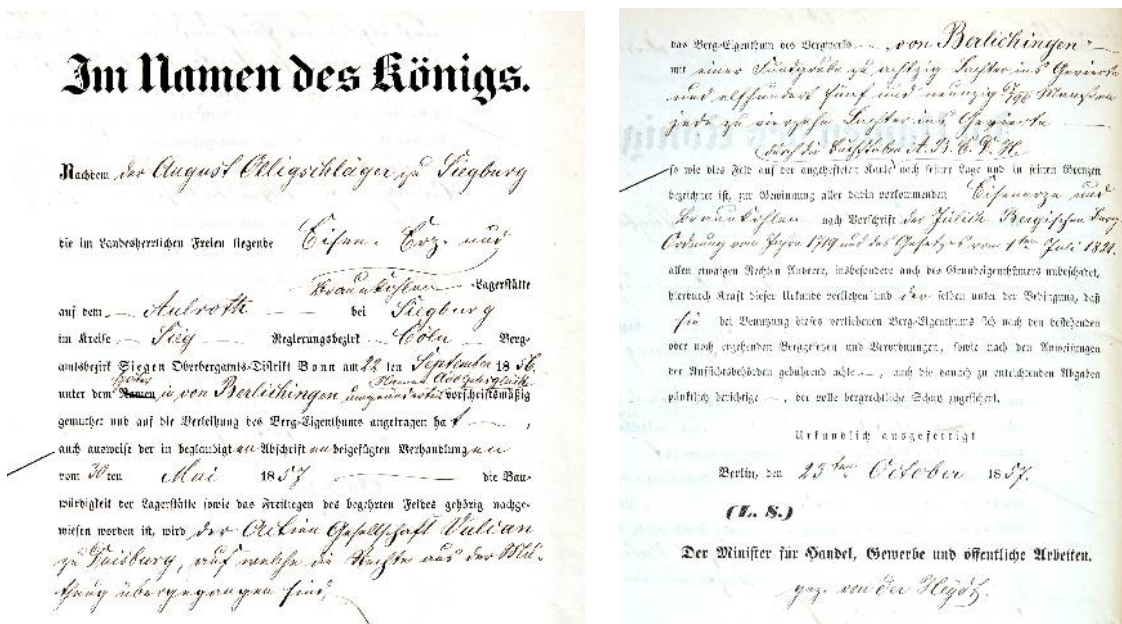 Im Namen des Königs.
Nachdem der AugustÖlligschläger zu Siegburg
die im Landesherrlichen Freien liegende Eisen-Erz- und
Braunkohlen-Lagerstätte
auf dem Aulroth bei Siegburg
im Kreise Sieg Regierungsbezirk Cöln Berg-
amtsbezirk Siegen Oberbergamts-Distrikt Bonn am 22 ten September 1856.
später Namen Adolphsglück
unter dem Namen in von Berlichingen umgeänderten vorschriftsmäßig
gemuthet und auf die Verleihung des Berg-Eigenthums angetragen hat,
auch ausweise der in beglaubigten Abschriften beigefügten Verhandlungen
vom 30 ten Mai 1857 die Bau-
würdigkeit der Lagerstätte sowie das Freiliegen des begehrten Feldes gehörig nachge-
wiesen worden ist, wird der Actien Gesellschaft Vulcan
zu Duisburg, auf welche die Rechte aus der Mu-
thung übergegangen sind,
das Berg-Eigenthum des Bergwerks „von Berlichingen“
mit einer Fundgrube zu achtzig Lachter ins Gevierte
und elfhundert fünf und neunzig Maaßen
jede zu vierzehn Lachter ins Gevierte
durch die Buchstaben A. B. C. D. H.
so wie dies Feld auf der angehefteten Karte nach seiner Lage und in seinen Grenzen
bezeichnet ist, zur Gewinnung aller darin vorkommenden Eisenerze und
Braunkohlen nach Vorschrift der Jülich Bergischen Berg-
Ordnung vom Jahre 1719 und des Gesetzes vom 1ten Juli 1821.
allen etwaigen Rechten Anderer, insbesondere auch des Grundeigenthümers unbeschadet,
hierdurch Kraft dieser Urkunde verliehen und derselben unter der Bedingung, daß
sie bei Benutzung dieses verliehenen Berg-Eigenthums sich nach den bestehenden
oder noch ergehenden Berggesetzen und Verordnungen, sowie nach den Anweisungen
der Aufsichtsbehörden gebührend achte, auch die danach zu entrichtenden Abgaben
pünktlich berichtige, der volle bergrechtliche Schutz zugesichert.
Urkundlich ausgefertigt
Berlin, den 25ten October 1857.
(L. S.)
Der Minister für Handel, Gewerbe und öffentliche Arbeiten.
gez. von der Heydt.